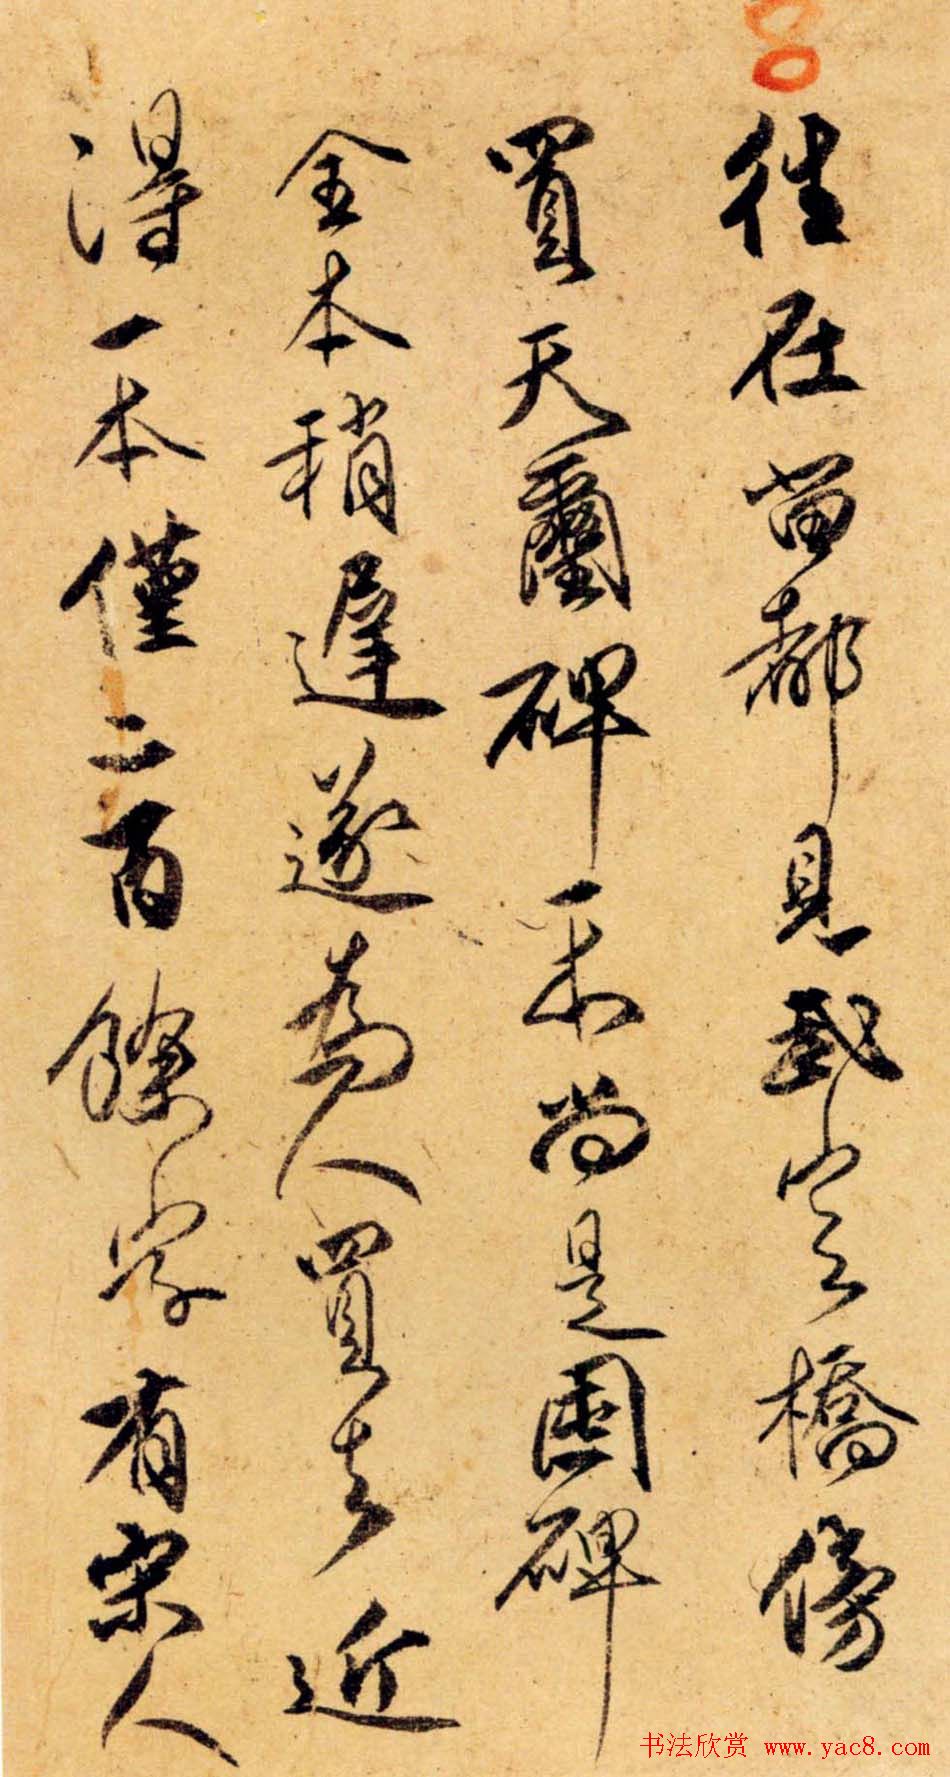 往在留都見武定橋傍
買天璽碑一本尚是碑
全本稍遲遂為人買去近
得一本僅二百餘字有宋人
书法欣赏 www.yac8.com